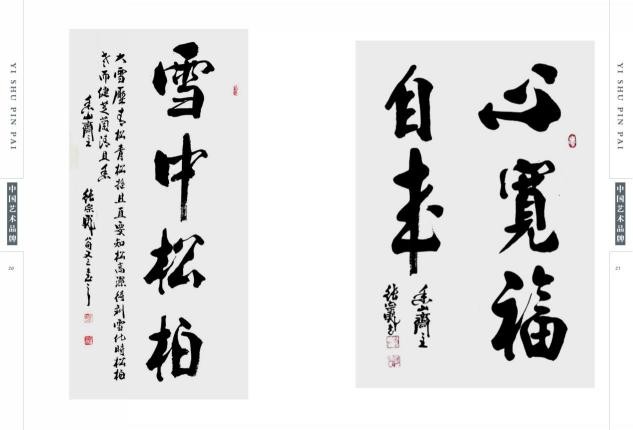 YI SHU PIN PAI
中国艺术品牌
20
雪中松柏
大雪压青松青松挺且直要知松高洁待到雪化时松柏
老而健芝兰清且香
香山斋主
YI SHU PIN PAI
中国艺术品牌
21
心宽福
自来
香山斋主